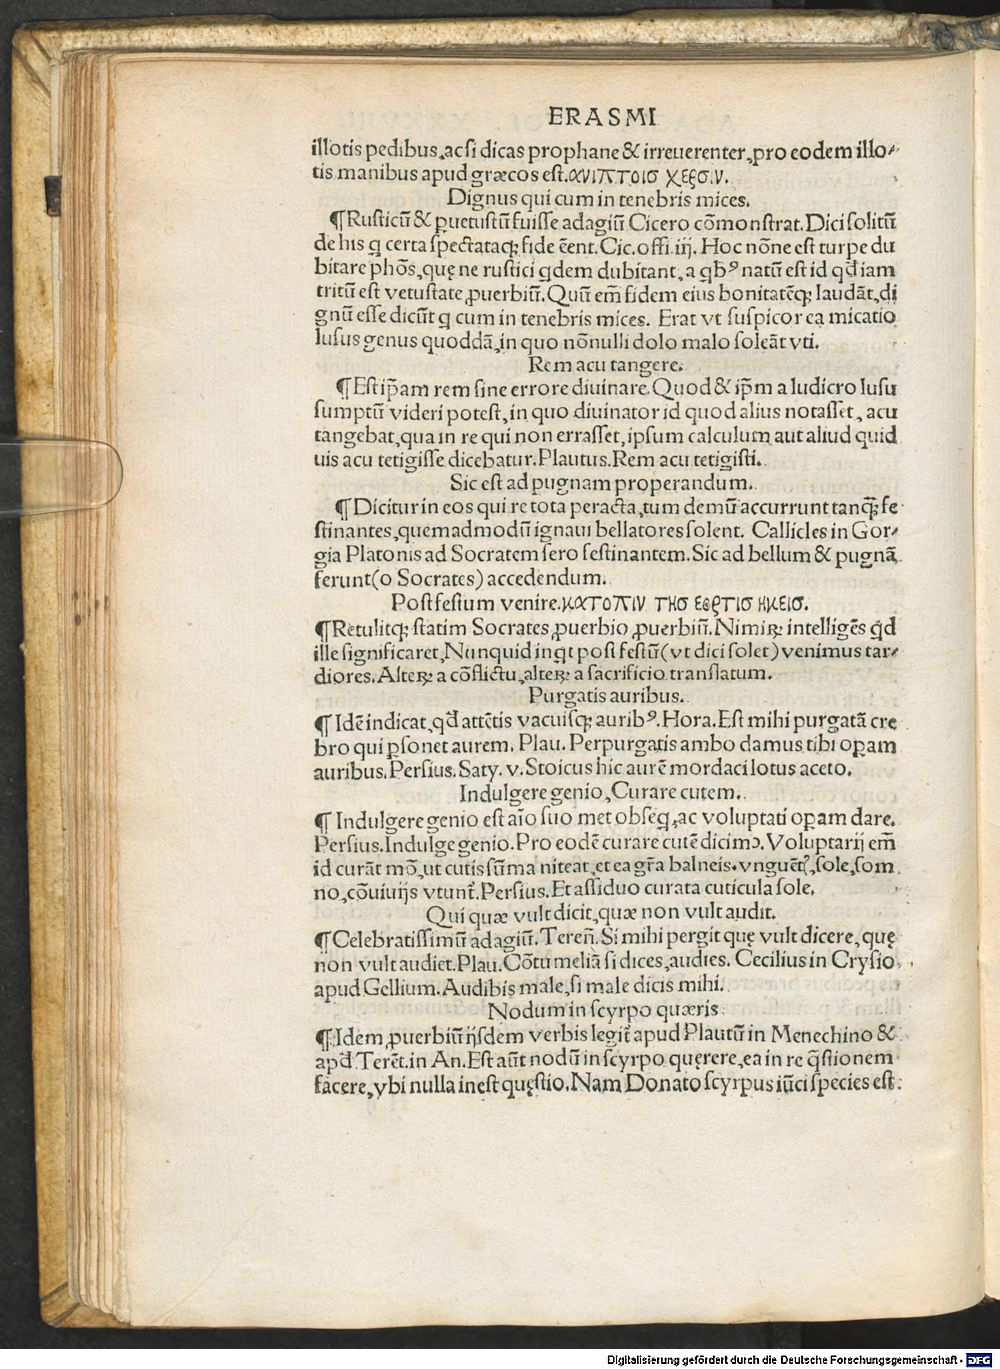 ERASMI
illotis pedibus, ac si dicas prophane & irreuerenter, pro eodem illo⸗
tis manibus apud græcos est. ανιπτοισ χερσιν.
Dignus qui cum in tenebris mices.
¶ Rusticũ & ꝑuetustũ fuisse adagiũ Cicero cõmonstrat. Dici solitũ
de his q̃ certa spectataq; fide ẽent. Cic. offi. iij. Hoc nõne est turpe du
bitare phõs, quę ne rustici qdem dubitant, a qbꝰ natũ est id qd̃ iam
tritũ est vetustate ꝓuerbiũ. Quũ em̃ fidem eius bonitatẽq; laudãt, di
gnũ esse dicũt q cum in tenebris mices. Erat vt suspicor ea micatio
lusus genus quoddã, in quo nõnulli dolo malo soleãt vti.
Rem acu tangere.
¶ Est ip̃am rem sine errore diuinare. Quod & ip̃m a ludicro lusu
sumptũ videri potest, in quo diuinator id quod alius notasset, acu
tangebat, qua in re qui non errasset, ipsum calculum aut aliud quid
uis acu tetigisse dicebatur. Plautus. Rem acu tetigisti.
Sic est ad pugnam properandum.
¶ Dicitur in eos qui re tota peracta, tum demũ accurrunt tanq̃; fe
stinantes, quemadmodũ ignaui bellatores solent. Callicles in Gor⸗
gia Platonis ad Socratem sero festinantem. Sic ad bellum & pugnã
ferunt (o Socrates) accedendum.
Post festum venire. κατοπιν τησ εορτισ ηκεισ.
¶ Retulitq; statim Socrates ꝓuerbio ꝓuerbiũ. Nimiꝝ intelligẽs qd̃
ille significaret, Nunquid inq̃t post festũ (vt dici solet) venimus tar⸗
diores. Alteꝝ a cõflictu, alteꝝ a sacrificio translatum.
Purgatis auribus.
¶ Idẽ indicat, qd̃ attẽtis vacuisq; auribꝰ. Hora. Est mihi purgatã cre
bro qui ꝑsonet aurem. Plau. Perpurgatis ambo damus tibi oꝑam
auribus. Persius. Saty. v. Stoicus hic aurẽ mordaci lotus aceto.
Indulgere genio, Curare cutem.
¶ Indulgere genio est aĩo suo met obseq, ac voluptati oꝑam dare.
Persius. Indulge genio. Pro eodẽ curare cutẽ dicimꝰ. Voluptarij em̃
id curãt mõ, ut cutis sũma niteat, et ea gr̃a balneis, vnguẽtꝭ, sole, som
no, cõuiuijs vtunt̃. Persius. Et assiduo curata cuticula sole.
Qui quæ vult dicit, quæ non vult audit.
¶ Celebratissimũ adagiũ. Tereñ. Si mihi pergit quę vult dicere, quę
non vult audiet. Plau. Cõtumeliã si dices, audies. Cecilius in Crysio
apud Gellium. Audibis male, si male dicis mihi.
Nodum in scyrpo quæris
¶ Idem ꝓuerbiũ ijsdem verbis legit̃ apud Plautũ in Menechino &
apd̃ Terẽt. in An. Est aũt nodũ in scyrpo quęrere, ea in re q̃stionem
facere, vbi nulla inest quęstio. Nam Donato scyrpus iũci species est
Digitalisierung gefördert durch die Deutsche Forschungsgemeinschaft - DFG